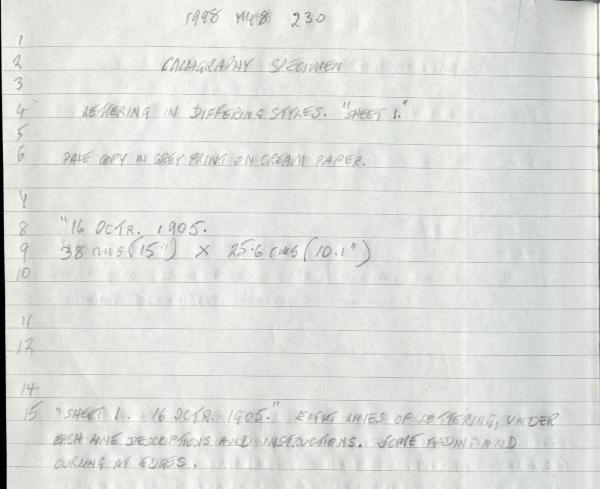 1998 M48 230
1
2 CALLIGRAPHY SPECIMEN
3
4 LETTERING IN DIFFERING STYLES. "SHEET 1."
5
6 PALE COPY IN GREY PRINT ON CREAM PAPER.
8 "16 OCTR. 1905.
9 38 cms (15") X 25.6 cms (10.1")
10
11
12
14
15 "SHEET 1. 16 OCTR. 1905." EIGHT LINES OF LETTERING, UNDER
EACH LINE DESCRIPTIONS AND INSTRUCTIONS. SOME FADING AND
CURLING AT EDGES.